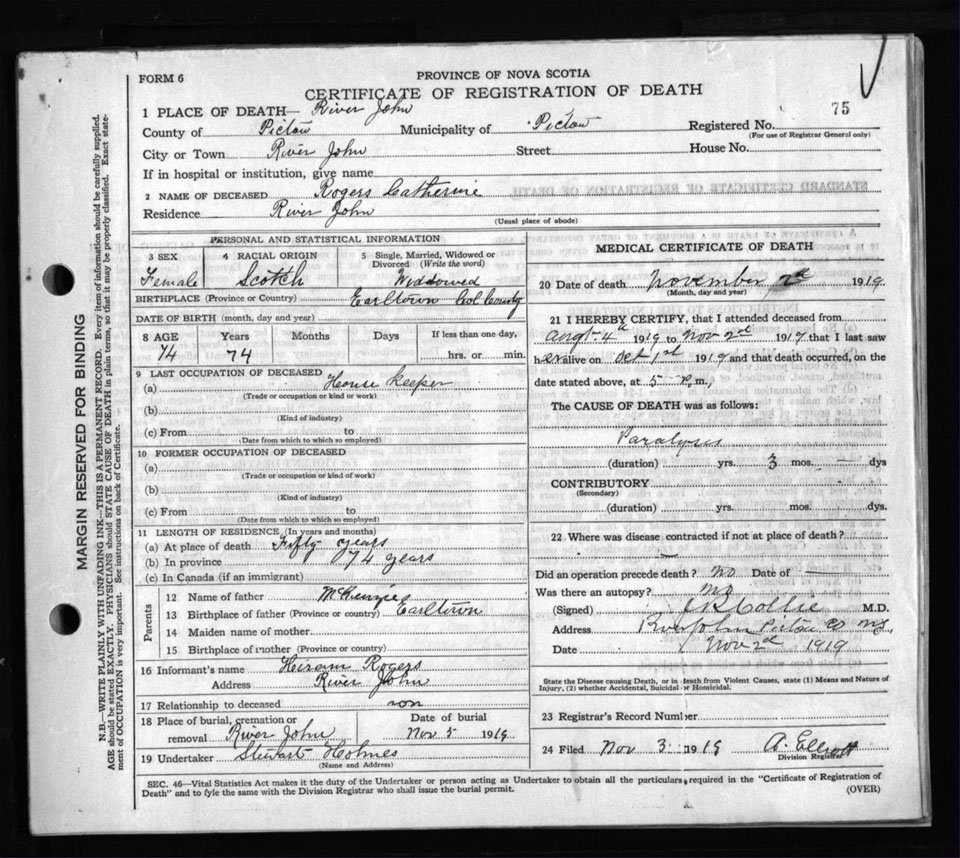 FORM 6
PROVINCE OF NOVA SCOTIA
CERTIFICATE OF REGISTRATION OF DEATH
1 PLACE OF DEATH— River John
75
County of Pictou Municipality of Pictou Registered No.
(For use of Registrar General only)
City or Town River John Street House No.
If in hospital or institution, give name
2 NAME OF DECEASED Rogers Catherine
Residence River John
(Usual place of abode)
PERSONAL AND STATISTICAL INFORMATION
3 SEX 4 RACIAL ORIGIN 5 Single, Married, Widowed or Divorced (Write the word)
Female Scotch Widdowed
BIRTHPLACE (Province or Country) Earltown Col County
DATE OF BIRTH (month, day and year)
8 AGE Years Months Days If less than one day,
74 74 hrs. or min.
9 LAST OCCUPATION OF DECEASED
(a) House keeper
(Trade or occupation or kind or work)
(b)
(Kind of industry)
(c) From to
(Date from which to which so employed)
10 FORMER OCCUPATION OF DECEASED
(a)
(Trade or occupation or kind of work)
(b)
(Kind of industry)
(c) From to
(Date from which to which so employed)
11 LENGTH OF RESIDENCE (In years and months)
(a) At place of death Fifty years
(b) In province 74 years
(c) In Canada (if an immigrant)
Parents
12 Name of father McKenzie
13 Birthplace of father (Province or country) Earltown
14 Maiden name of mother
15 Birthplace of mother (Province or country)
16 Informant's name Hiram Rogers
Address River John
17 Relationship to deceased son
18 Place of burial, cremation or removal River John
Date of burial Nov 5 1919
19 Undertaker Stewart Holmes
(Name and Address)
MEDICAL CERTIFICATE OF DEATH
20 Date of death November 2nd 1919
(Month, day and year)
21 I HEREBY CERTIFY, that I attended deceased from
Augt 4th 1919 to Nov 2nd 1919 that I last saw
her alive on Oct 1st 1919 and that death occurred, on the
date stated above, at 5 P.m.,
The CAUSE OF DEATH was as follows:
Paralysis
(duration) yrs. 3 mos. — dys
CONTRIBUTORY
(Secondary)
(duration) yrs. mos. dys.
22 Where was disease contracted if not at place of death?
Did an operation precede death? no Date of
Was there an autopsy? no
(Signed) Collie M.D.
Address River John Pictou Co N.S.
Date Nov 2nd 1919
State the Disease causing Death, or in death from Violent Causes, state (1) Means and Nature of
Injury, (2) whether Accidental, Suicidal or Homicidal.
23 Registrar's Record Number
24 Filed Nov 3 1919 A. Elliott
Division Registrar
SEC. 46—Vital Statistics Act makes it the duty of the Undertaker or person acting as Undertaker to obtain all the particulars, required in the "Certificate of Registration of
Death" and to fyle the same with the Division Registrar who shall issue the burial permit.
(OVER)
MARGIN RESERVED FOR BINDING
N.B.—WRITE PLAINLY WITH UNFADING INK—THIS IS A PERMANENT RECORD. Every item of information should be carefully supplied.
AGE should be stated EXACTLY. PHYSICIANS should STATE CAUSE OF DEATH in plain terms, so that it may be properly classified. Exact state-
ment of OCCUPATION is very important. See instructions on back of Certificate.